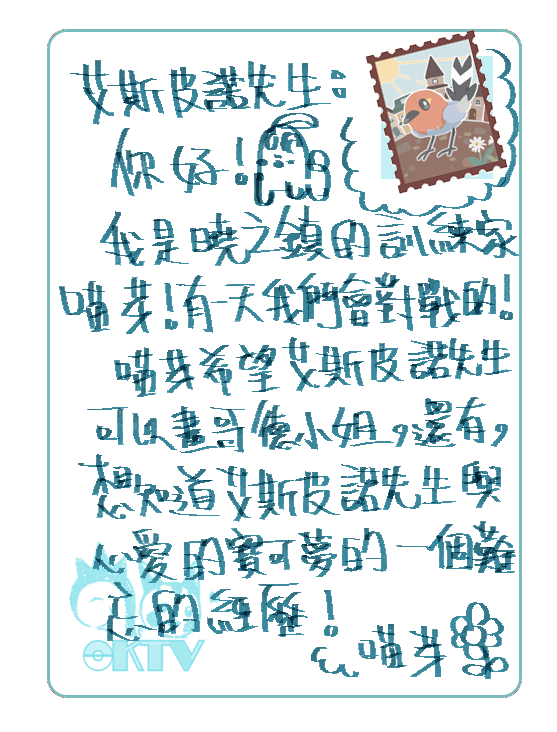 艾斯皮諾先生：
你好！
我是曉之鎮的訓練家
喵芽！有一天我們會對戰的！
喵芽希望艾斯皮諾先生
可以畫哥德小姐，還有，
想知道艾斯皮諾先生與
心愛的寶可夢的一個難
忘的經歷！
喵芽
OKTV